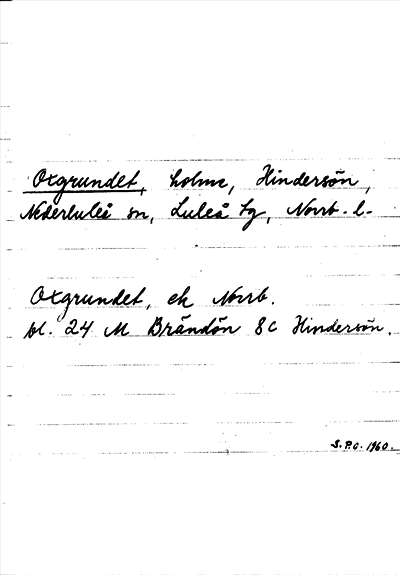 Oxgrundet, holme, Hindersön,
Nederluleå sn, Luleå tg, Norrb. l.
Oxgrundet, ek Norrb.
bl. 24 M Brändön 8c Hindersön.
S.P.C. 1960.